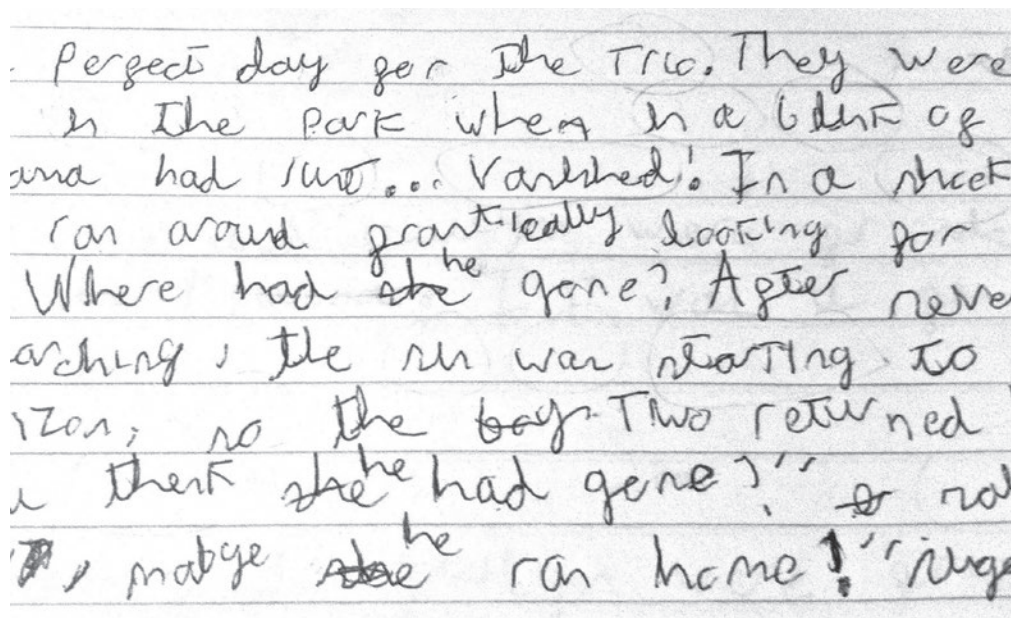 Perfect day for the Trio. They were
in the park when in a blink of
had just... Vanished! In a
ran around frantically looking for
Where had he gone? After
arching, the sun was starting to
izon, so the Two returned
think he had gone?"
, mabye he ran home!"